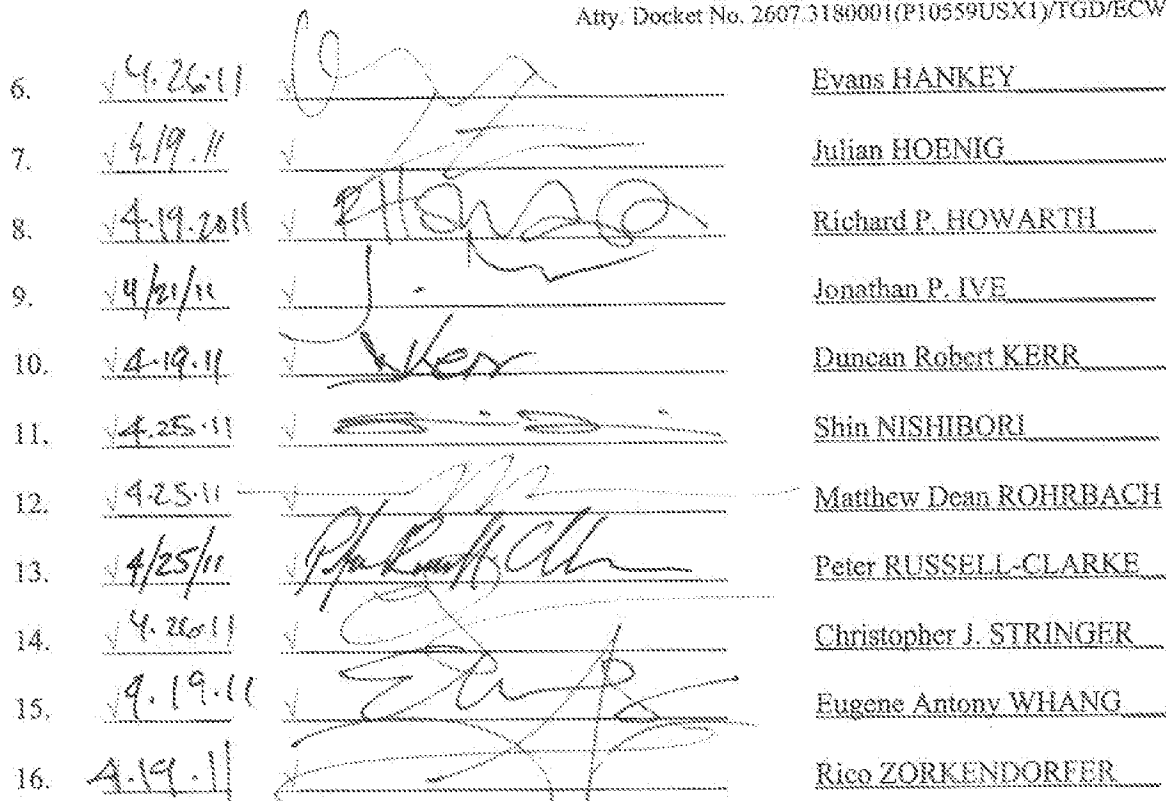 Atty. Docket No. 2607.3180001(P10559USX1)/TGD/ECW
6. √ 4.26.11 √ Evans HANKEY
7. √ 4.19.11 √ Julian HOENIG
8. √ 4.19.2011 √ Richard P. HOWARTH
9. √ 4/21/11 √ Jonathan P. IVE
10. √ 4.19.11 √ Duncan Robert KERR
11. √ 4.25.11 √ Shin NISHIBORI
12. √ 4.25.11 √ Matthew Dean ROHRBACH
13. √ 4/25/11 √ Peter RUSSELL-CLARKE
14. √ √ Christopher J. STRINGER
15. √ 4.19.11 √ Eugene Antony WHANG
16. 4.19.11 √ Rico ZORKENDORFER